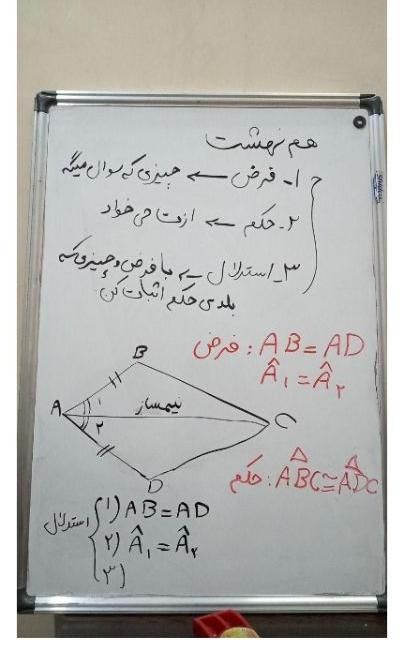 هم نهشت
۱- فرض ← چیزی که سوال میگه
۲- حکم ← ازت می خواد
۳- استدلال ← با فرض و چیزی که
بلدی حکم اثبات کن.
فرض: AB = AD
Â₁ = Â₂
B
A
۱
۲
نیمساز
C
D
حکم: ABC ≅ ADC
استدلال
۱) AB = AD
۲) Â₁ = Â₂
۳)